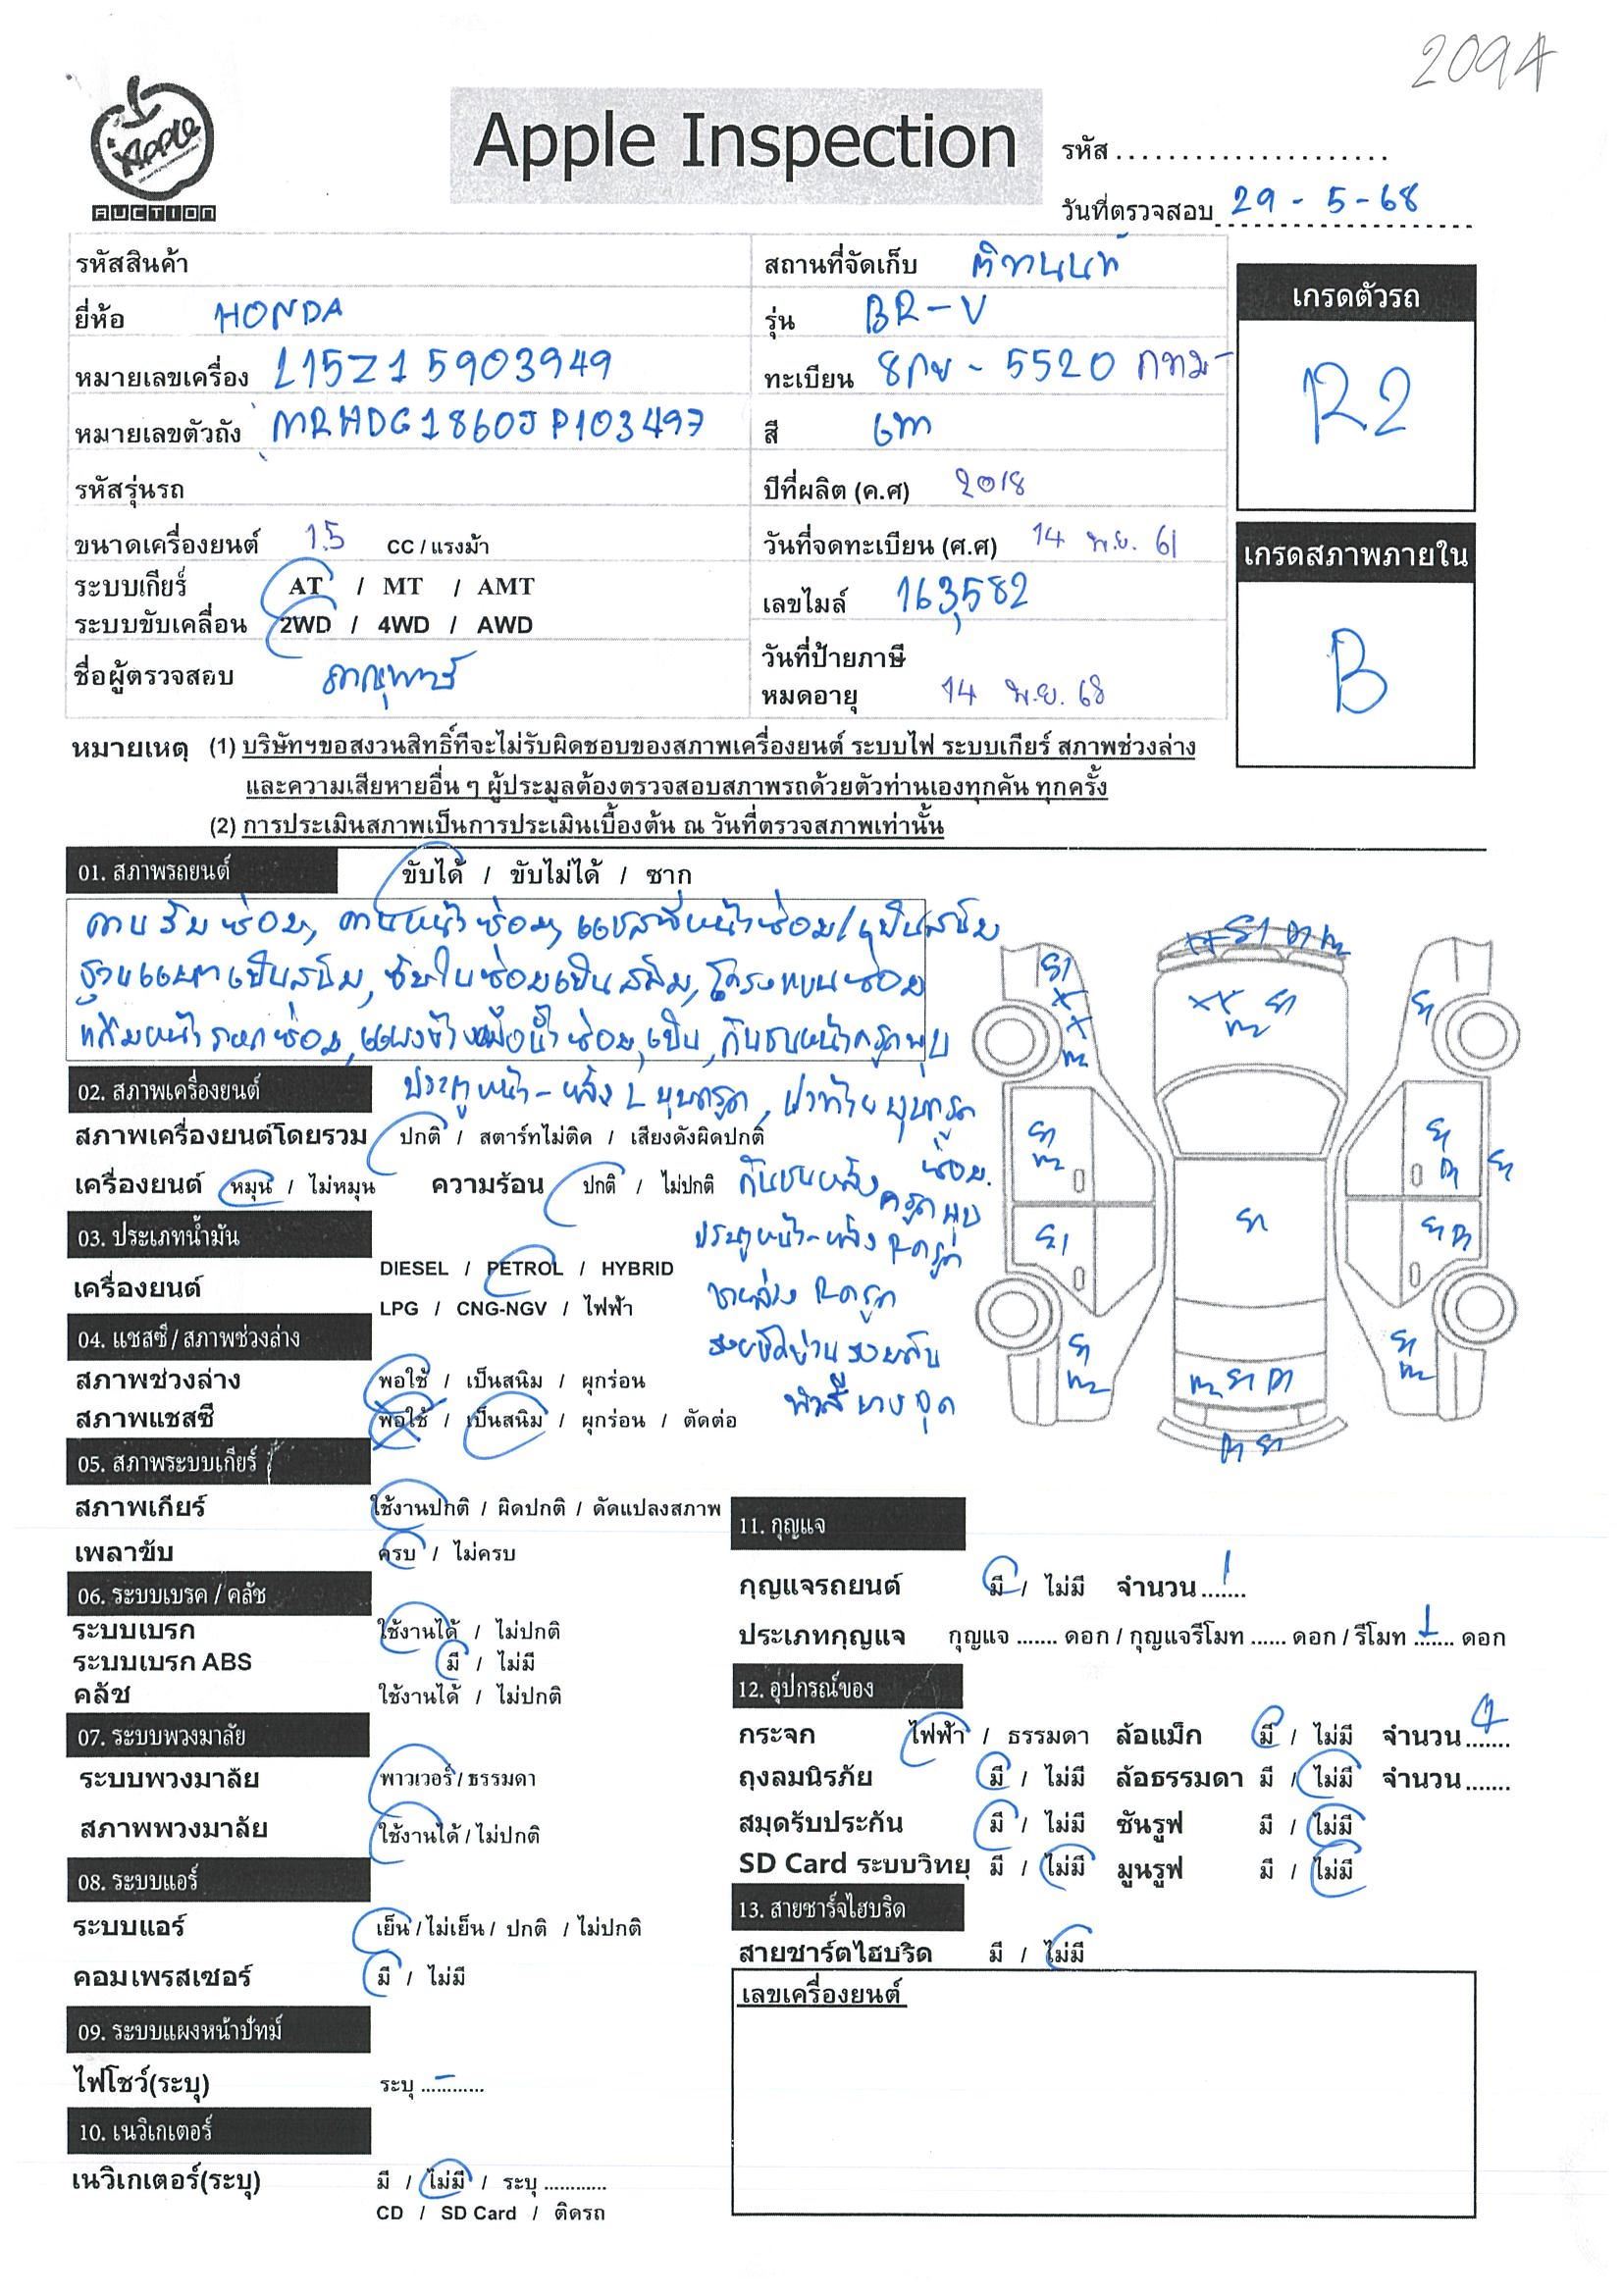 2094
Apple
AUCTION
Apple Inspection
รหัส.....................
วันที่ตรวจสอบ 29 - 5 - 68
รหัสสินค้า
สถานที่จัดเก็บ ติวานนท์
เกรดตัวรถ
R2
ยี่ห้อ HONDA
รุ่น BR-V
หมายเลขเครื่อง L15Z1 5903949
ทะเบียน 8กย - 5520 กทม.
หมายเลขตัวถัง MRHDG1860JP103497
สี เทา
รหัสรุ่นรถ
ปีที่ผลิต (ค.ศ) 2018
ขนาดเครื่องยนต์ 1.5 CC / แรงม้า
วันที่จดทะเบียน (ศ.ศ) 14 พ.ย. 61
เกรดสภาพภายใน
B
ระบบเกียร์ AT / MT / AMT
ระบบขับเคลื่อน 2WD / 4WD / AWD
เลขไมล์ 163,582
ชื่อผู้ตรวจสอบ
วันที่ป้ายภาษี
หมดอายุ 14 พ.ย. 68
หมายเหตุ (1) บริษัทฯขอสงวนสิทธิ์ที่จะไม่รับผิดชอบของสภาพเครื่องยนต์ ระบบไฟ ระบบเกียร์ สภาพช่วงล่าง
และความเสียหายอื่น ๆ ผู้ประมูลต้องตรวจสอบสภาพรถด้วยตัวท่านเองทุกคัน ทุกครั้ง
(2) การประเมินสภาพเป็นการประเมินเบื้องต้น ณ วันที่ตรวจสภาพเท่านั้น
01. สภาพรถยนต์ ขับได้ / ขับไม่ได้ / ซาก
คานรับซ่อม, คานหน้าซ่อม, แชสซีหน้าซ่อม/เป็นสนิม
ฐานแบตเป็นสนิม, ซุ้มในซ่อมเป็นสนิม, โครงบนซ่อม
แก้มหน้า ซ่อม, ซ่อม, เป็น, กันชนหน้าครูดบุบ
02. สภาพเครื่องยนต์
ประตูหน้า-หลัง L บุบครูด, ฝาท้ายบุบครูด
ซ่อม.
สภาพเครื่องยนต์โดยรวม ปกติ / สตาร์ทไม่ติด / เสียงดังผิดปกติ
เครื่องยนต์ หมุน / ไม่หมุน ความร้อน ปกติ / ไม่ปกติ
กันชนหลังครูดบุบ
03. ประเภทน้ำมัน
ประตูหน้า-หลัง R ครูด
เครื่องยนต์ DIESEL / PETROL / HYBRID
LPG / CNG-NGV / ไฟฟ้า
R ครูด
04. แชสซี / สภาพช่วงล่าง
สภาพช่วงล่าง พอใช้ / เป็นสนิม / ผุกร่อน
สภาพแชสซี พอใช้ / เป็นสนิม / ผุกร่อน / ตัดต่อ
รอบคัน
จุด
05. สภาพระบบเกียร์
สภาพเกียร์ ใช้งานปกติ / ผิดปกติ / ดัดแปลงสภาพ
เพลาขับ ครบ / ไม่ครบ
06. ระบบเบรค / คลัช
ระบบเบรก ใช้งานได้ / ไม่ปกติ
ระบบเบรก ABS มี / ไม่มี
คลัช ใช้งานได้ / ไม่ปกติ
07. ระบบพวงมาลัย
ระบบพวงมาลัย พาวเวอร์ / ธรรมดา
สภาพพวงมาลัย ใช้งานได้ / ไม่ปกติ
08. ระบบแอร์
ระบบแอร์ เย็น / ไม่เย็น / ปกติ / ไม่ปกติ
คอมเพรสเซอร์ มี / ไม่มี
09. ระบบแผงหน้าปัทม์
ไฟโชว์(ระบุ) ระบุ ....-.......
10. เนวิเกเตอร์
เนวิเกเตอร์(ระบุ) มี / ไม่มี / ระบุ ............
CD / SD Card / ติดรถ
11. กุญแจ
กุญแจรถยนต์ มี / ไม่มี จำนวน 1
ประเภทกุญแจ กุญแจ ....... ดอก / กุญแจรีโมท ...... ดอก / รีโมท 1 ดอก
12. อุปกรณ์ของ
กระจก ไฟฟ้า / ธรรมดา ล้อแม็ก มี / ไม่มี จำนวน 4
ถุงลมนิรภัย มี / ไม่มี ล้อธรรมดา มี / ไม่มี จำนวน.......
สมุดรับประกัน มี / ไม่มี ซันรูฟ มี / ไม่มี
SD Card ระบบวิทยุ มี / ไม่มี มูนรูฟ มี / ไม่มี
13. สายชาร์จไฮบริด
สายชาร์ตไฮบริด มี / ไม่มี
เลขเครื่องยนต์